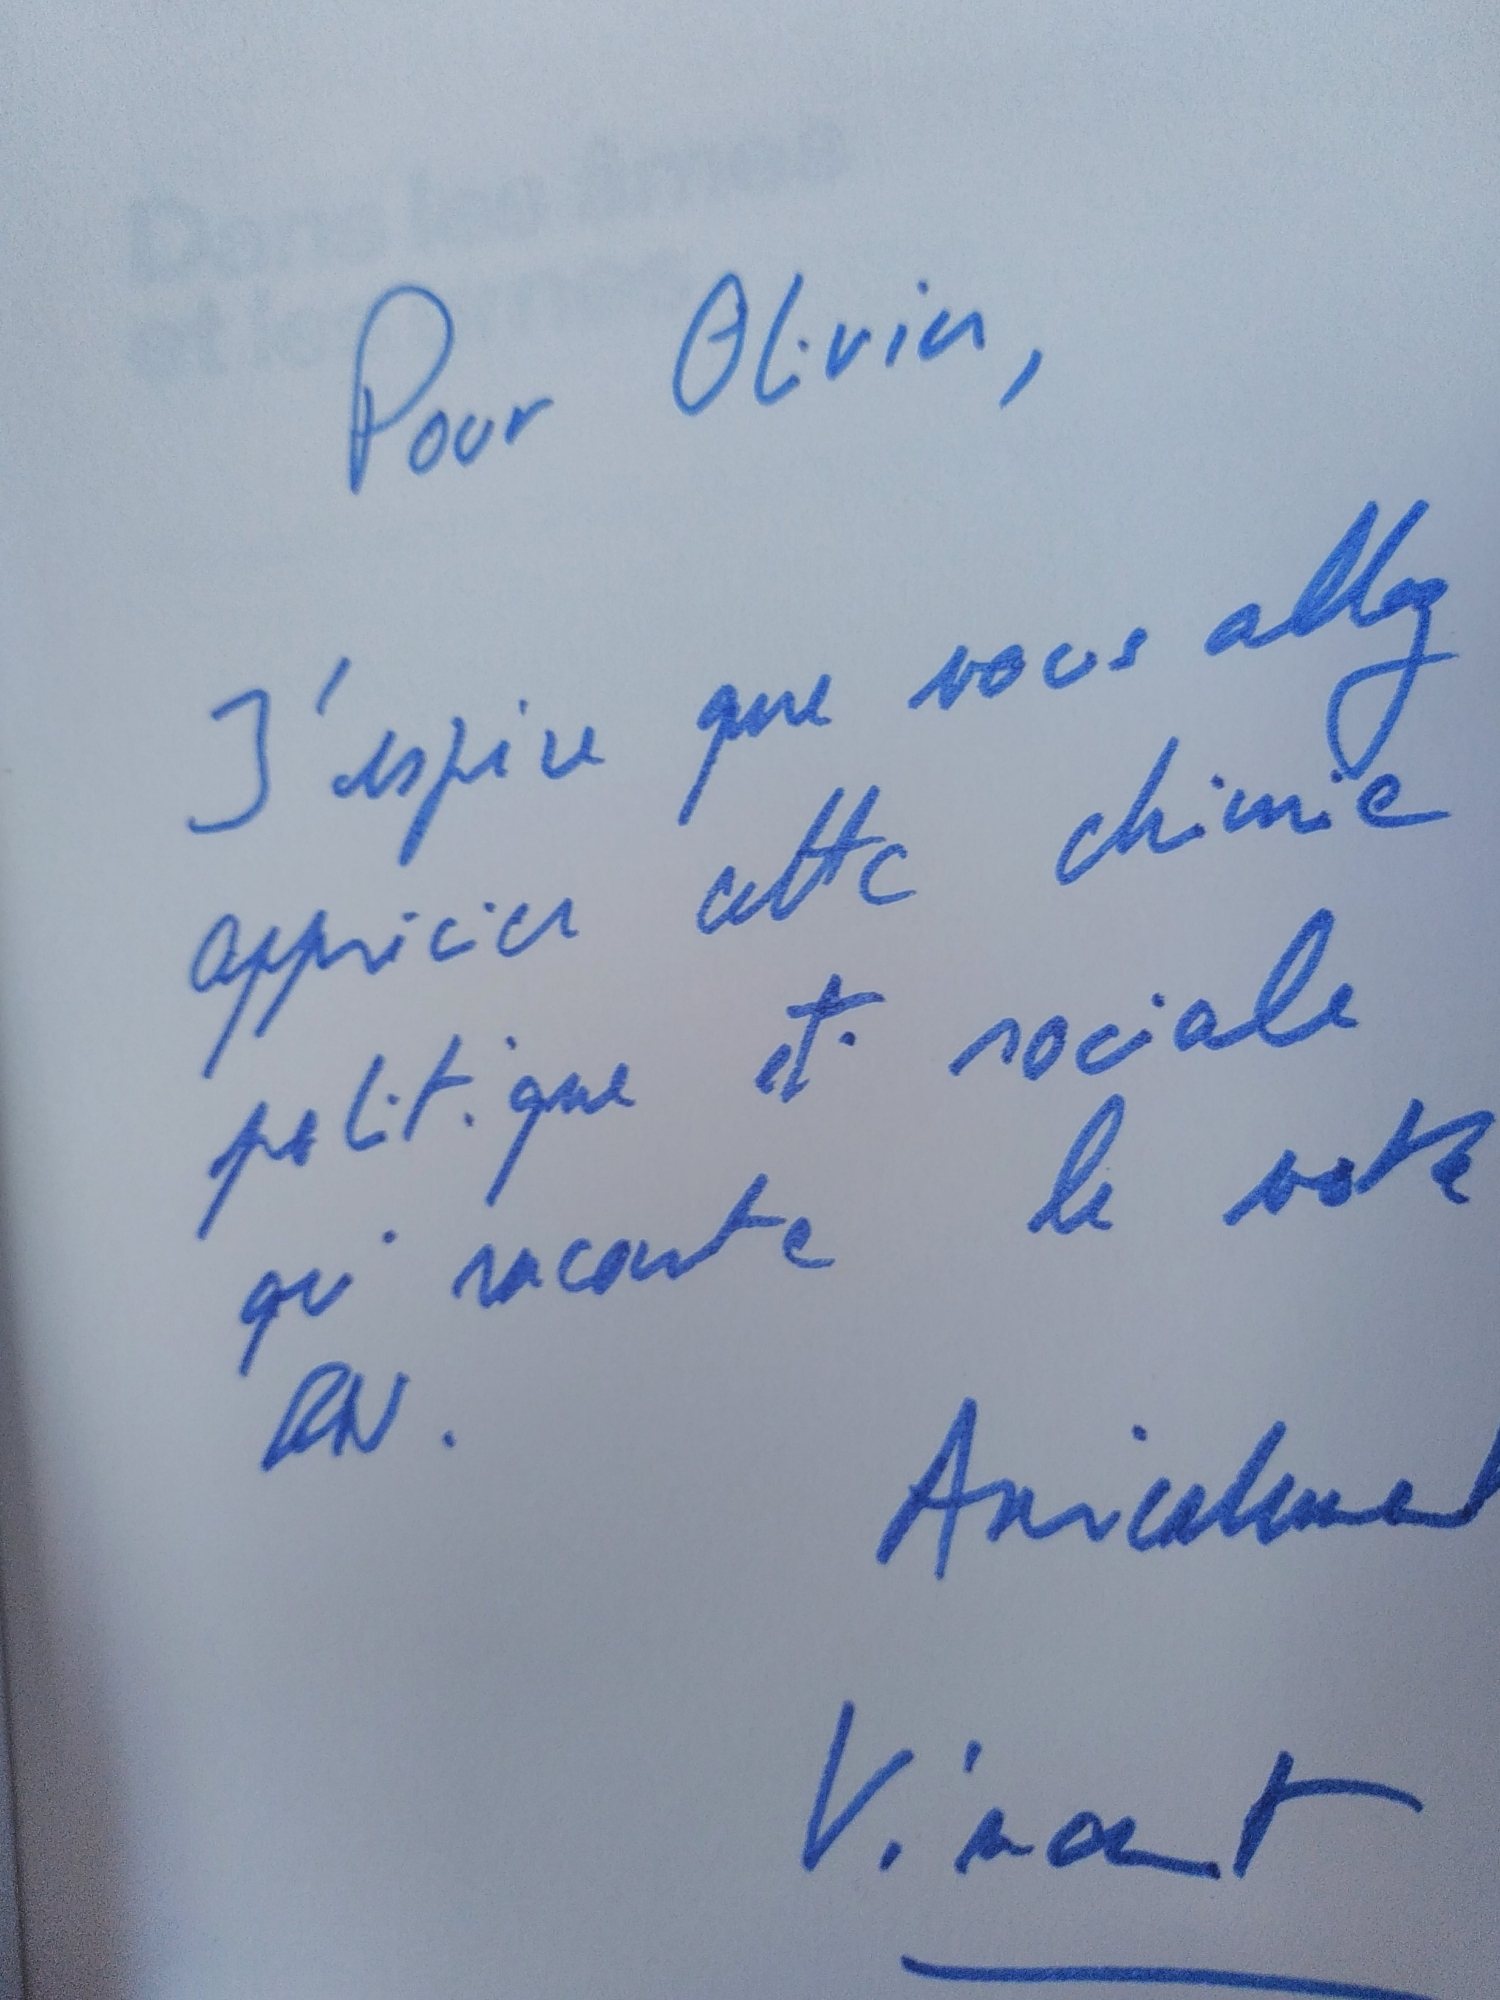 Dans les âmes
et les urnes
Pour Olivier,
J'espère que vous allez
apprécier cette chimie
politique et sociale
qui raconte le vote
RN.
Amicalement
Vincent